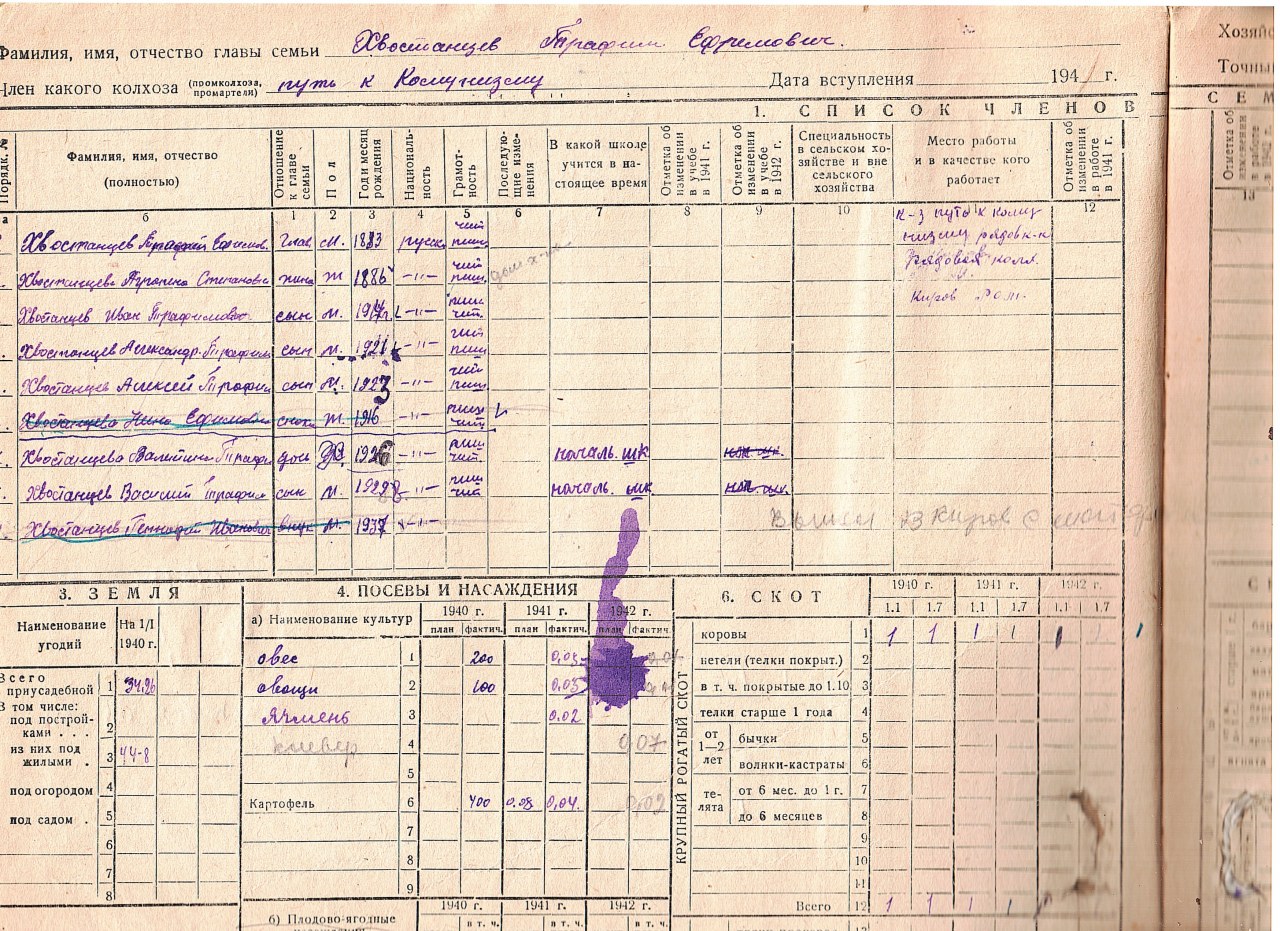 Фамилия, имя, отчество главы семьи Хвостанцев Трафим Ефримович.
Член какого колхоза (промколхоза, промартели) путь к Комунизму Дата вступления 194 г.
Хозяйс
Точный
1. СПИСОК ЧЛЕНОВ
СЕМ
Порядк. № Фамилия, имя, отчество (полностью) Отношение к главе семьи Пол Год и месяц рождения Националь-ность Грамот-ность Последую-щие изме-нения В какой школе учится в на-стоящее время Отметка об изменении в учебе в 1941 г. Отметка об изменении в учебе в 1942 г. Специальность в сельском хо-зяйстве и вне сельского хозяйства Место работы и в качестве кого работает Отметка об изменении в работе в 1941 г. Отметка об изменении в работе в 1942 г.
а б 1 2 3 4 5 6 7 8 9 10 12 13
Хвостанцев Трафим Ефримов. глав м. 1883 русск чит пиш к-з путь к кому низму рядов к-к
Хвостанцева Степановна жена ж 1886 -"- чит пиш. рядовая колх.
Хвостанцев Иван Трафимович сын м. 1917 -"- пиш чит. Киров
Хвостанцев Александр Трафим сын м. 1921 -"- чит пиш
Хвостанцев Алексей Трафим сын м. 1923 -"- чит пиш.
Хвостанцева Нина Ефимовна сноха ж. 1916 -"- пиш чит.
Хвостанцева Валитина Трафи доч 1926 -"- пиш чит. началь. шк нач. шк.
Хвостанцев Василий Трафим сын м. 1928 -"- пиш чит началь. шк нач. шк.
Хвостанцев Геннадий Иванович внук м. 1937 -"-
в Киров с
3. ЗЕМЛЯ
Наименование угодий На 1/I 1940 г.
Всего приусадебной 1 34.26
В том числе:
под построй-ками . . . 2
из них под жилыми . 3 44-8
под огородом 4
под садом . 5
6
7
8
4. ПОСЕВЫ И НАСАЖДЕНИЯ
а) Наименование культур 1940 г. 1941 г. 1942 г.
план фактич. план фактич. план фактич.
овес 1 200 0,03
овощи 2 100 0.03
Ячмень 3 0.02
клевер 4 0,07
5
Картофель 6 400 0.08 0,04. 0,02
7
8
9
1940 г. 1941 г. 1942 г.
б) Плодово-ягодные в т. ч. в т. ч. в т. ч.
6. СКОТ
1940 г. 1941 г. 1942 г.
1.1 1.7 1.1 1.7 1.1 1.7
КРУПНЫЙ РОГАТЫЙ СКОТ
коровы 1 1 1 1 1 1 1
нетели (телки покрыт.) 2
в т. ч. покрытые до 1.10 3
телки старше 1 года 4
от 1—2 лет бычки 5
волики-кастраты 6
те-лята от 6 мес. до 1 г. 7
до 6 месяцев 8
9
10
11
Всего 12 1 1 1 1 1